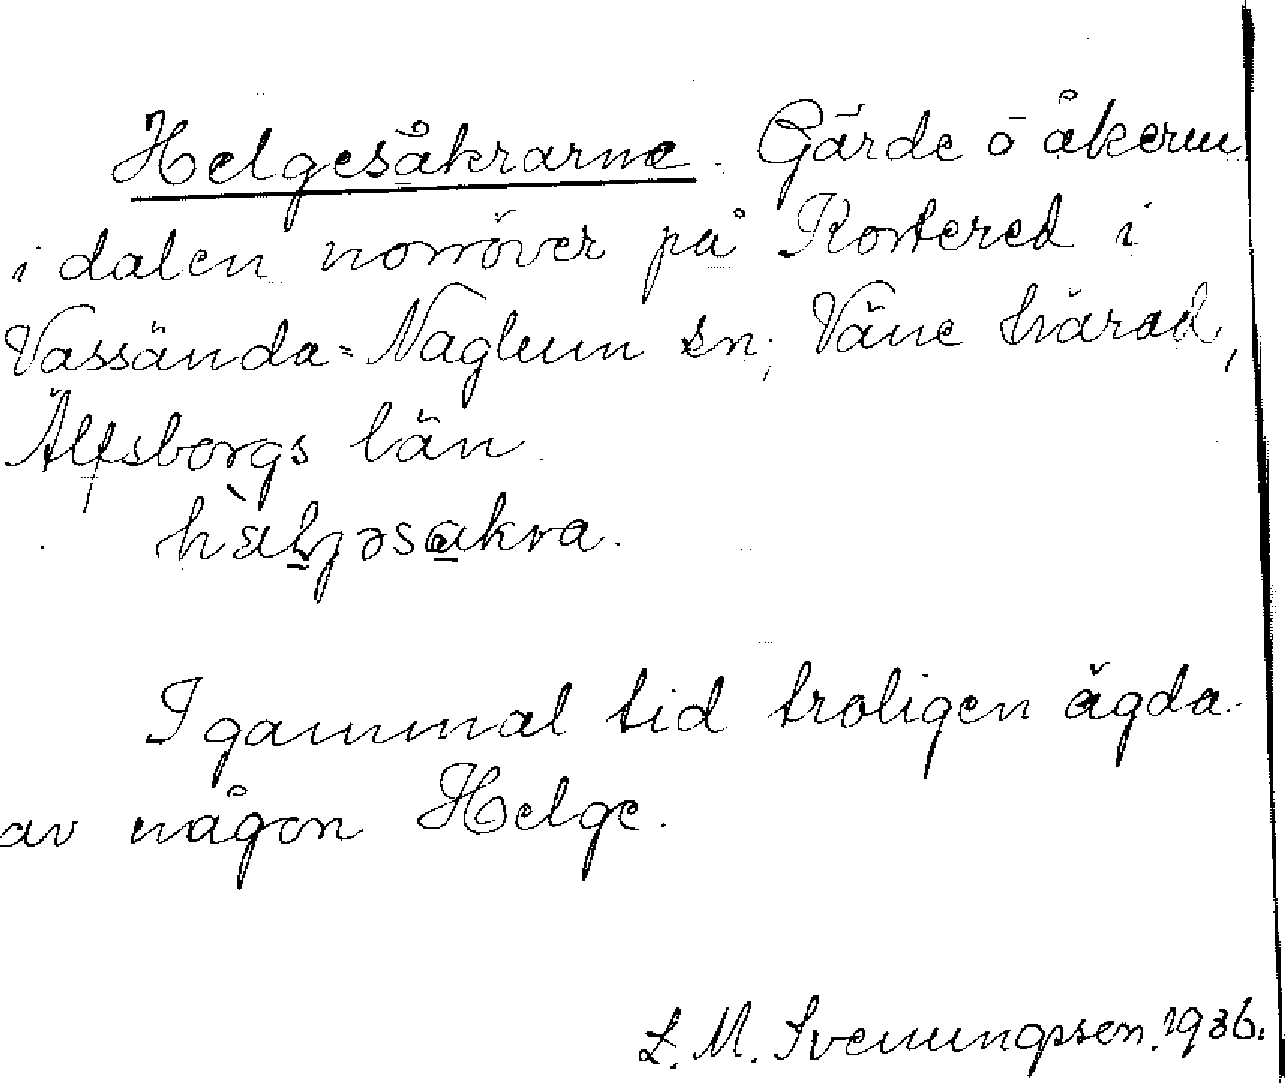 Helgesåkrarne. Gärde ō åkerm
i dalen norröver på Rortered i
Vassända-Naglum sn, Väne härad,
Älfsborgs län.
I gammal tid troligen ägda
av någon Helge.
L. M. Svenungsson. 1936.